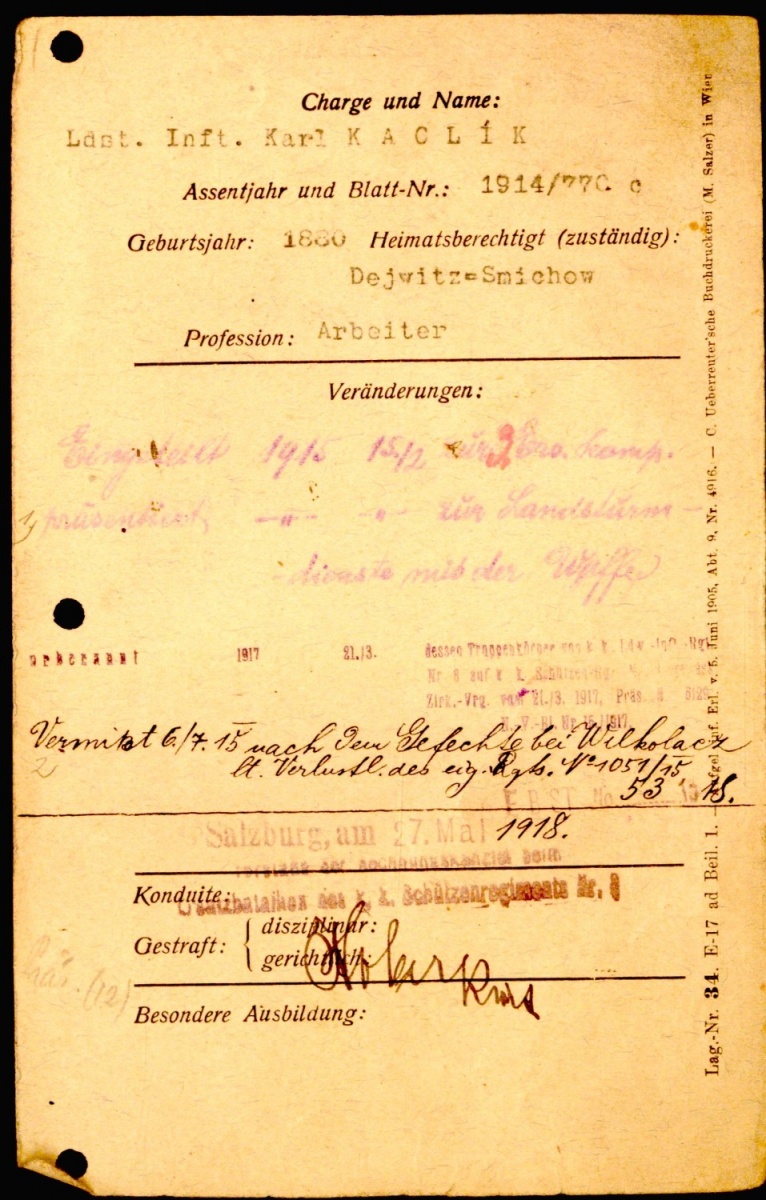 Charge und Name:
Ldst. Inft. Karl K A C L Í K
Assentjahr und Blatt-Nr.: 1914/770 c
Geburtsjahr: 1880 Heimatsberechtigt (zuständig):
Dejwitz=Smichow
Profession: Arbeiter
Veränderungen:
Eingeteilt 1915 15./2 zur Ers. Komp.
präsentiert, —„— —„— zur Landsturm-
dienste mit der Waffe
1917 21./3. dessen Truppenkörper von k. k. Ldw.-Inft.-Rgt.
Nr. 8 auf k. k. Schützen
Zirk.-Vrg. vom 21./3. 1917, Präs.
N.-V.-Bl. Nr. 15/1917.
Vermißt 6./7. 15 nach dem Gefechte bei Wilkolacz
2 lt. Verlustl. des eig. Rgts. No 1051/15,
E. B. ST. No. 53 18.
Salzburg, am 27. Mai 1918.
Vorstand der Rechnungskanzlei beim
Ersatzbataillon des k. k. Schützenregiments Nr. 8
Konduite:
Gestraft: { disziplinär:
gerichtlich:
Besondere Ausbildung:
(12)
Lag.-Nr. 34. E-17 ad Beil. 1. — Aufgel. auf. Erl. v. 5. Juni 1905, Abt. 9, Nr. 4916. — C. Ueberreuter'sche Buchdruckerei (M. Salzer) in Wien